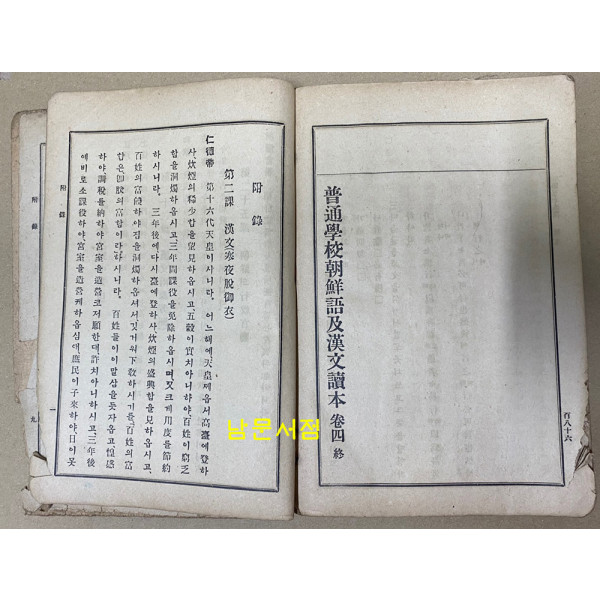 普通學校朝鮮語及漢文讀本 卷四 終
百八十六
附錄
第二課 漢文(寒夜脫御衣)
仁德帝 第十六代天皇이시니라. 어느해에, 天皇께옵서 高臺에登하
사, 炊煙의稀少함을望見하옵시고, 五穀이實치아니하야, 百姓이窮乏
함을洞燭하옵시고, 三年間課役을免除하옵시며, 또크게用度를節約
하시니라. 三年後에, 다시臺에登하사, 炊煙의盛興함을見하옵시고,
百姓의富饒하야짐을洞燭하옵셔서, 깃거워下敎하시기를, 百姓의富
함은卽朕의富함이라하시니라. 百姓들이이말삼을듯자옵고, 惶感
하야, 調稅를納하야, 宮室을造營코저願한대, 許치아니하시고, 三年後
에비로소課役하야, 宮室을造營케하옵심애, 庶民이子來하야, 日이못
附錄
一
附錄
九
남문서점